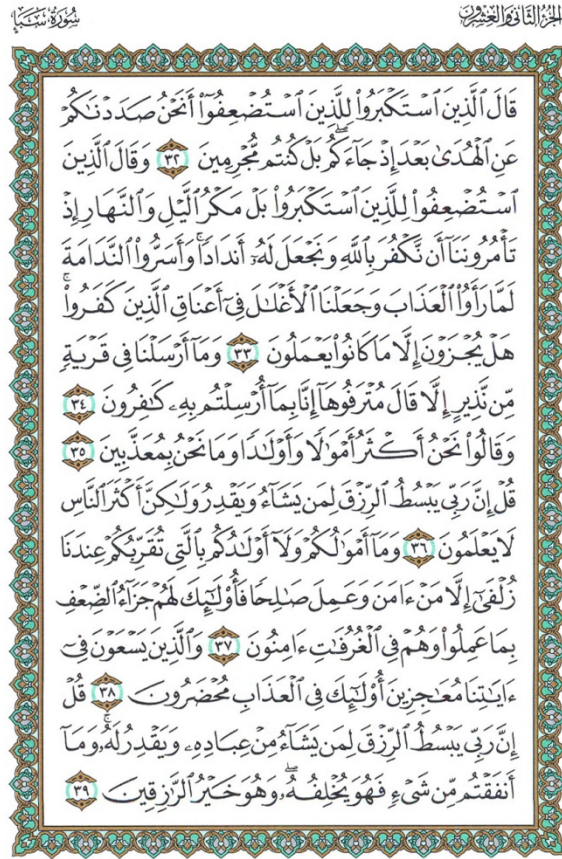 الجزء الثاني والعشرون
سورة سبإ
قَالَ ٱلَّذِينَ ٱسْتَكْبَرُوا۟ لِلَّذِينَ ٱسْتُضْعِفُوٓا۟ أَنَحْنُ صَدَدْنَـٰكُمْ
عَنِ ٱلْهُدَىٰ بَعْدَ إِذْ جَآءَكُمۖ بَلْ كُنتُم مُّجْرِمِينَ ٣٢ وَقَالَ ٱلَّذِينَ
ٱسْتُضْعِفُوا۟ لِلَّذِينَ ٱسْتَكْبَرُوا۟ بَلْ مَكْرُ ٱلَّيْلِ وَٱلنَّهَارِ إِذْ
تَأْمُرُونَنَآ أَن نَّكْفُرَ بِٱللَّهِ وَنَجْعَلَ لَهُۥٓ أَندَادًاۚ وَأَسَرُّوا۟ ٱلنَّدَامَةَ
لَمَّا رَأَوُا۟ ٱلْعَذَابَ وَجَعَلْنَا ٱلْأَغْلَـٰلَ فِىٓ أَعْنَاقِ ٱلَّذِينَ كَفَرُوا۟ۚ
هَلْ يُجْزَوْنَ إِلَّا مَا كَانُوا۟ يَعْمَلُونَ ٣٣ وَمَآ أَرْسَلْنَا فِى قَرْيَةٍ
مِّن نَّذِيرٍ إِلَّا قَالَ مُتْرَفُوهَآ إِنَّا بِمَآ أُرْسِلْتُم بِهِۦ كَـٰفِرُونَ ٣٤
وَقَالُوا۟ نَحْنُ أَكْثَرُ أَمْوَٰلًا وَأَوْلَـٰدًا وَمَا نَحْنُ بِمُعَذَّبِينَ ٣٥
قُلْ إِنَّ رَبِّى يَبْسُطُ ٱلرِّزْقَ لِمَن يَشَآءُ وَيَقْدِرُ وَلَـٰكِنَّ أَكْثَرَ ٱلنَّاسِ
لَا يَعْلَمُونَ ٣٦ وَمَآ أَمْوَٰلُكُمْ وَلَآ أَوْلَـٰدُكُم بِٱلَّتِى تُقَرِّبُكُمْ عِندَنَا
زُلْفَىٰٓ إِلَّا مَنْ ءَامَنَ وَعَمِلَ صَـٰلِحًا فَأُو۟لَـٰٓئِكَ لَهُمْ جَزَآءُ ٱلضِّعْفِ
بِمَا عَمِلُوا۟ وَهُمْ فِى ٱلْغُرُفَـٰتِ ءَامِنُونَ ٣٧ وَٱلَّذِينَ يَسْعَوْنَ فِىٓ
ءَايَـٰتِنَا مُعَـٰجِزِينَ أُو۟لَـٰٓئِكَ فِى ٱلْعَذَابِ مُحْضَرُونَ ٣٨ قُلْ
إِنَّ رَبِّى يَبْسُطُ ٱلرِّزْقَ لِمَن يَشَآءُ مِنْ عِبَادِهِۦ وَيَقْدِرُ لَهُۥۚ وَمَآ
أَنفَقْتُم مِّن شَىْءٍ فَهُوَ يُخْلِفُهُۥۖ وَهُوَ خَيْرُ ٱلرَّٰزِقِينَ ٣٩